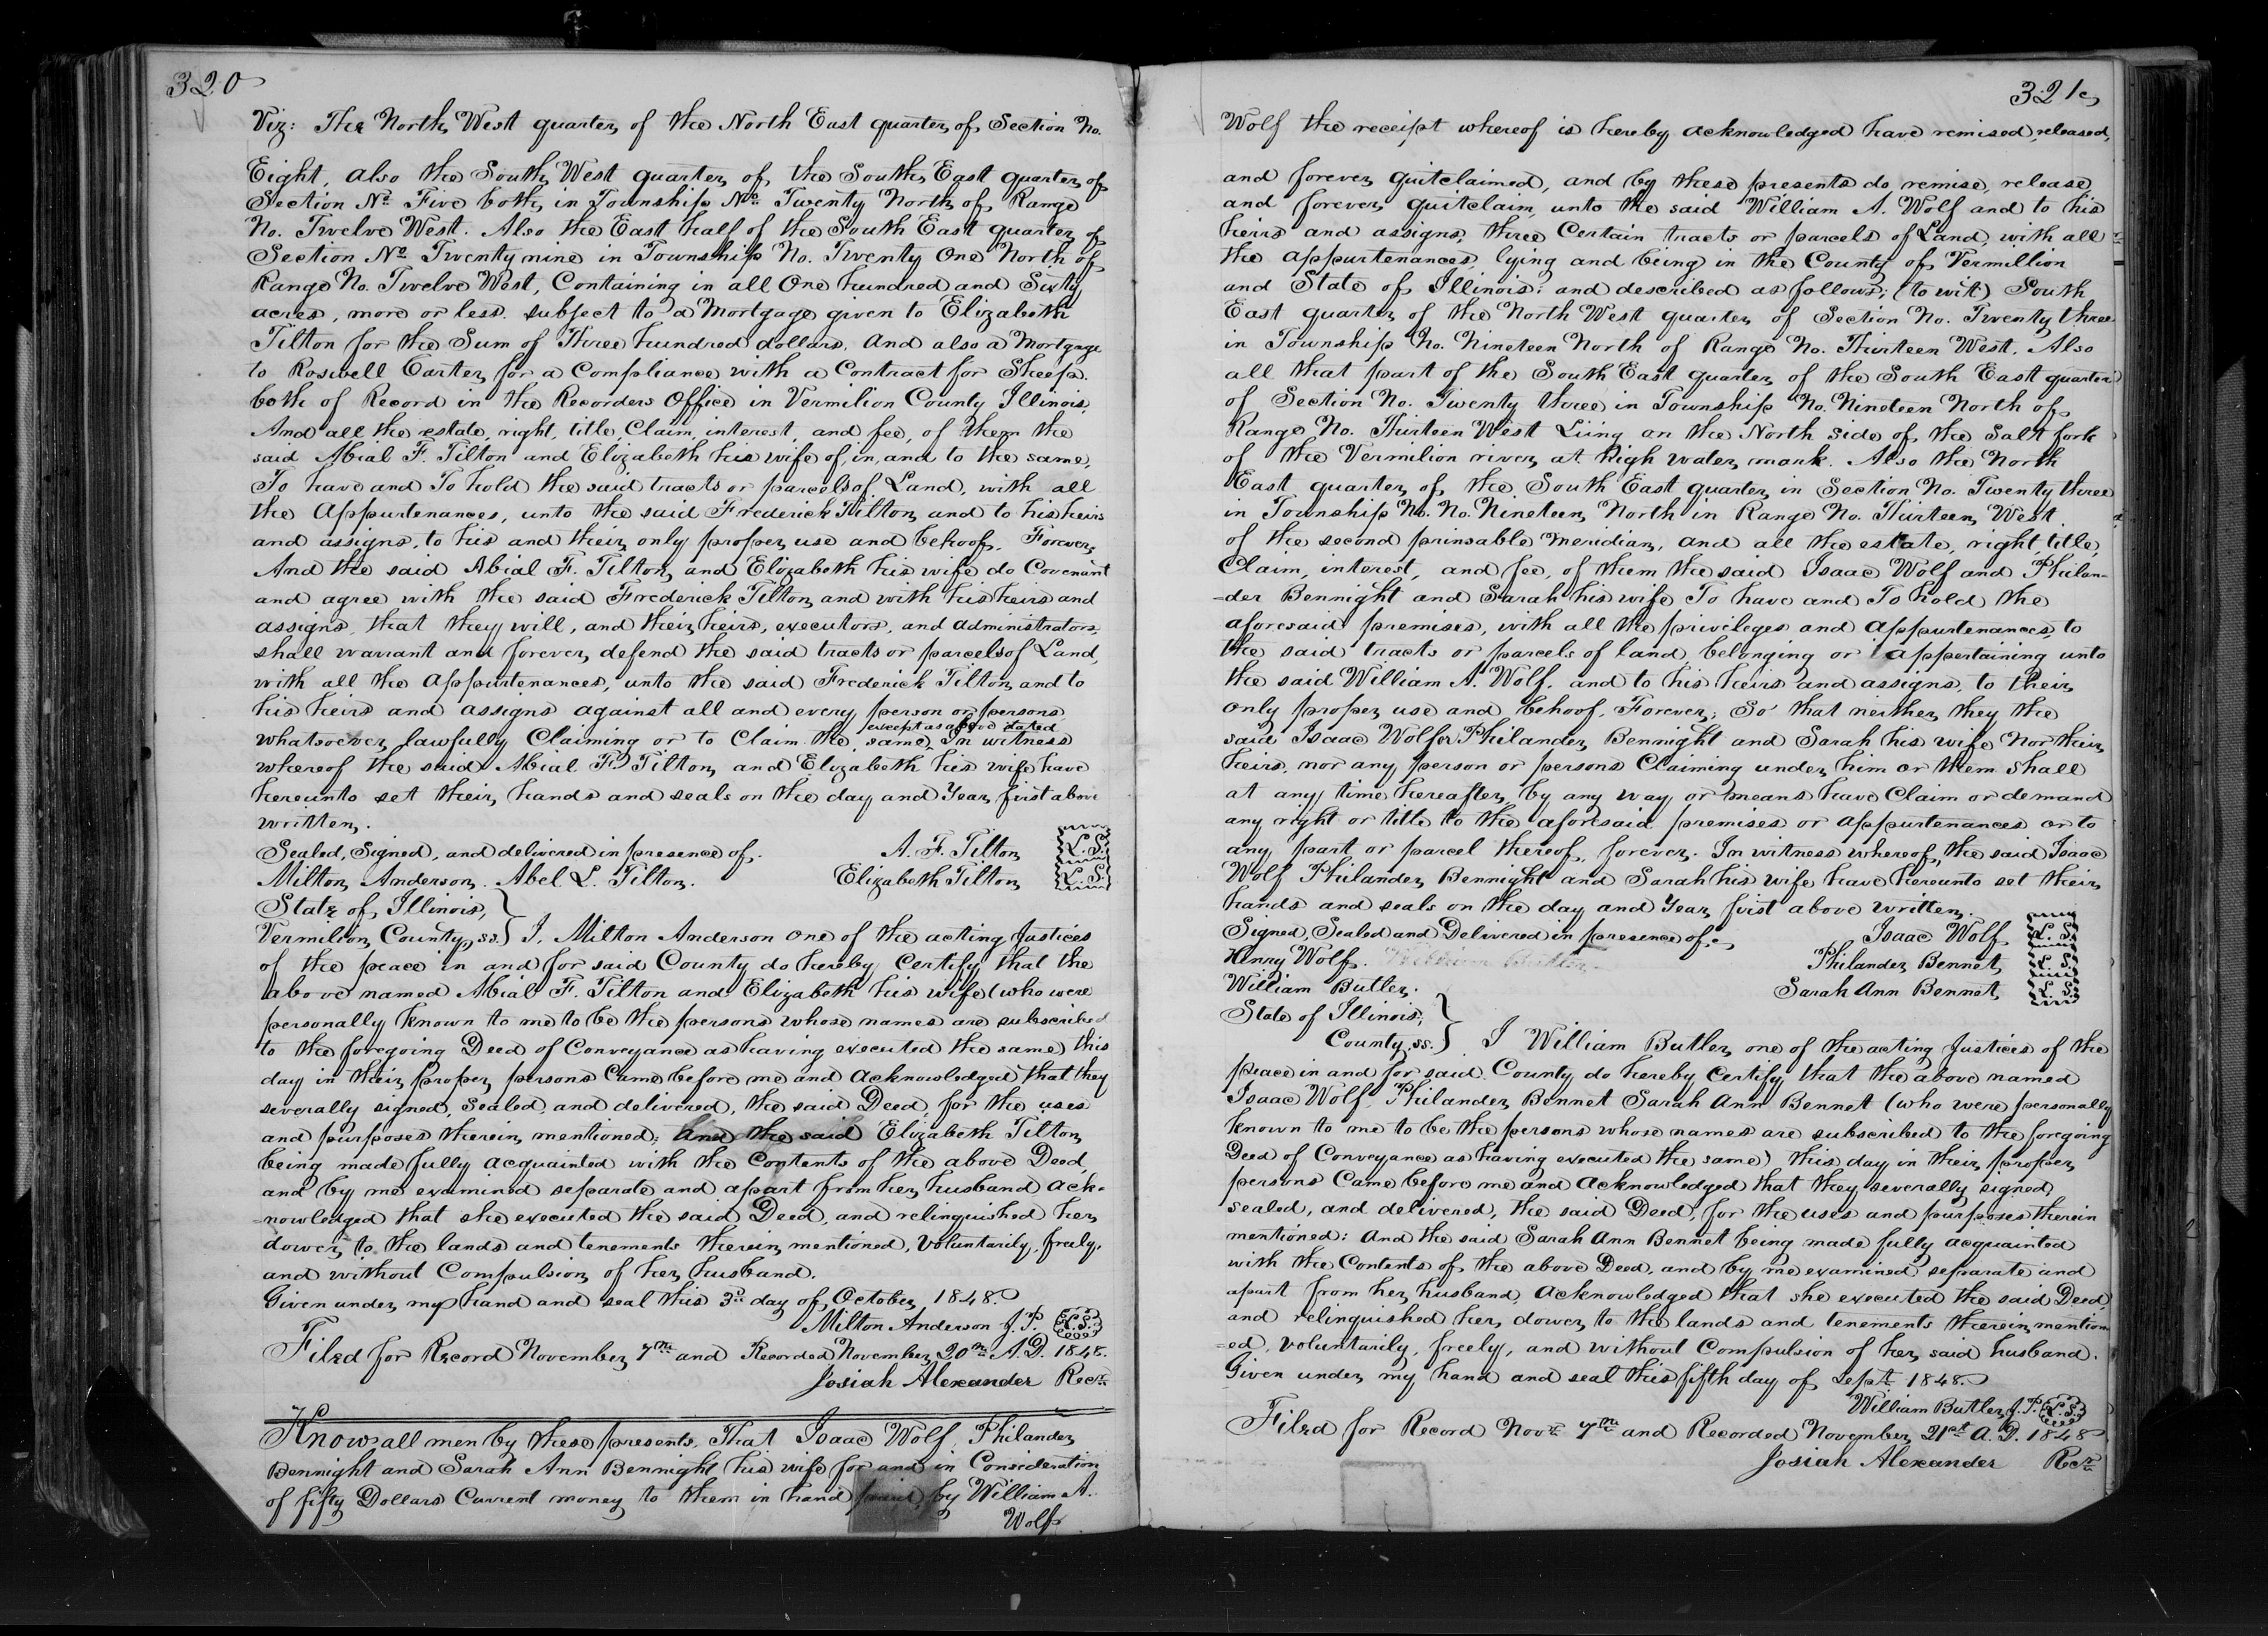 320
Viz: The North West quarter of the North East quarter of Section No.
Eight, also the South West quarter of the South East quarter of
Section No. Five both in Township No. Twenty North of Range
No. Twelve West. Also the East half of the South East quarter of
Section No. Twenty nine in Township No. Twenty One North of
Range No. Twelve West, Containing in all One hundred and Sixty
acres, more or less. subject to a Mortgage given to Elizabeth
Tilton for the Sum of Three hundred dollars. And also a Mortgage
to Roswell Carter for a Compliance with a Contract for Sheep.
both of Record in the Recorders Office in Vermilion County Illinois,
And all the estate, right, title, Claim, interest, and fee, of them the
said Abial F. Tilton and Elizabeth his wife of, in, and to the same,
To have and To hold the said tracts or parcels of Land, with all
the Appurtenances, unto the said Frederick Tilton and to his heirs
and assigns, to his and their only proper use and behoof, Forever,
And the said Abial F. Tilton and Elizabeth his wife do Covenant
and agree with the said Frederick Tilton and with his heirs and
assigns, that they will, and their heirs, executors, and administrators,
shall warrant and forever defend the said tracts or parcels of Land,
with all the Appurtenances, unto the said Frederick Tilton and to
his heirs and assigns against all and every person or persons
except as above stated
whatsoever lawfully Claiming or to Claim the same, In witness
whereof the said Abial F. Tilton and Elizabeth his wife have
hereunto set their hands and seals on the day and Year first above
written.
Sealed, Signed, and delivered in presence of. A. F. Tilton L.S.
Milton Anderson. Abel L. Tilton. Elizabeth Tilton L.S.
State of Illinois,
Vermilion County, ss. I, Milton Anderson one of the acting Justices
of the peace in and for said County do hereby Certify that the
above named Abial F. Tilton and Elizabeth his wife (who were
personally Known to me to be the persons whose names are subscribed
to the foregoing Deed of Conveyance as having executed the same) this
day in their proper persons Came before me and Acknowledged that they
severally signed, sealed, and delivered, the said Deed, for the uses
and purposes therein mentioned; And the said Elizabeth Tilton
being made fully acquainted with the Contents of the above Deed,
and by me examined separate and apart from her husband Ack-
=nowledged that she executed the said Deed, and relinquished her
dower, to the lands and tenements therein mentioned, Voluntarily, freely,
and without Compulsion of her husband.
Given under my hand and seal this 3d. day of October 1848.
Milton Anderson J.P. L.S.
Filed for Record November 7th and Recorded November 20th A.D. 1848.
Josiah Alexander Recr.
Know all men by these presents, That Isaac Wolf, Philander
Bennight and Sarah Ann Bennight his wife for and in Consideration
of fifty Dollars Current money to them in hand paid, by William A.
Wolf
321
Wolf the receipt whereof is hereby acknowledged have remised, released,
and forever quitclaimed, and by these presents do, remise, release,
and forever quitclaim, unto the said William A. Wolf and to his
heirs and assigns, three Certain tracts or parcels of Land, with all
the appurtenances, lying and being in the County of Vermillion
and State of Illinois; and described as follows; (to wit) South
East quarter of the North West quarter of Section No. Twenty three
in Township No. Nineteen North of Range No. Thirteen West. Also
all that part of the South East quarter of the South East quarter
of Section No. Twenty three in Township No. Nineteen North of
Range No. Thirteen West Liing on the North side of the Salt fork
of the Vermilion river at high water mark. Also the North
East quarter of the South East quarter in Section No. Twenty three
in Township No. No. Nineteen North in Range No. Thirteen West.
of the second prinsable Meridian, and all the estate, right, title,
Claim, interest, and fee, of them the said Isaac Wolf and Philan-
=der Bennight and Sarah his wife To have and To hold the
aforesaid premises, with all the privileges and Appurtenances, to
the said tracts or parcels of land, belonging or Appertaining unto
the said William A. Wolf, and to his heirs and assigns, to their
only proper use and behoof, Forever; So that neither they the
said Isaac Wolf or Philander Bennight and Sarah his wife Nor their
heirs, nor any person or persons Claiming under him or them shall
at any time hereafter by any way or means have Claim or demand
any right or title to the aforesaid premises or Appurtenances or to
any part or parcel thereof, forever. In witness whereof, the said Isaac
Wolf Philander Bennight and Sarah his wife have hereunto set their
hands and seals on the day and Year first above written.
Signed, Sealed and Delivered in presence of Isaac Wolf L.S.
Henry Wolf. William Butler Philander Bennet L.S.
William Butler. Sarah Ann Bennet L.S.
State of Illinois,
County, ss. I William Butler one of the acting Justices of the
peace in and for said County do hereby Certify that the above named
Isaac Wolf, Philander Bennet Sarah Ann Bennet (who were personally
Known to me to be the persons whose names are subscribed to the foregoing
Deed of Conveyance as having executed the same) this day in their proper
persons Came before me and Acknowledged that they severally signed,
sealed, and delivered, the said Deed, for the uses and purposes therein
mentioned: And the said Sarah Ann Bennet being made fully acquainted
with the Contents of the above Deed, and by me examined separate and
apart from her husband, Acknowledged that she executed the said Deed,
and relinquished her dower, to the lands and tenements therein mention
=ed, Voluntarily, freely, and without Compulsion of her said husband.
Given under my hand and seal this fifth day of Sept. 1848.
William Butler J.P. L.S.
Filed for Record Novr. 7th and Recorded November 21st A.D. 1848
Josiah Alexander Recr.